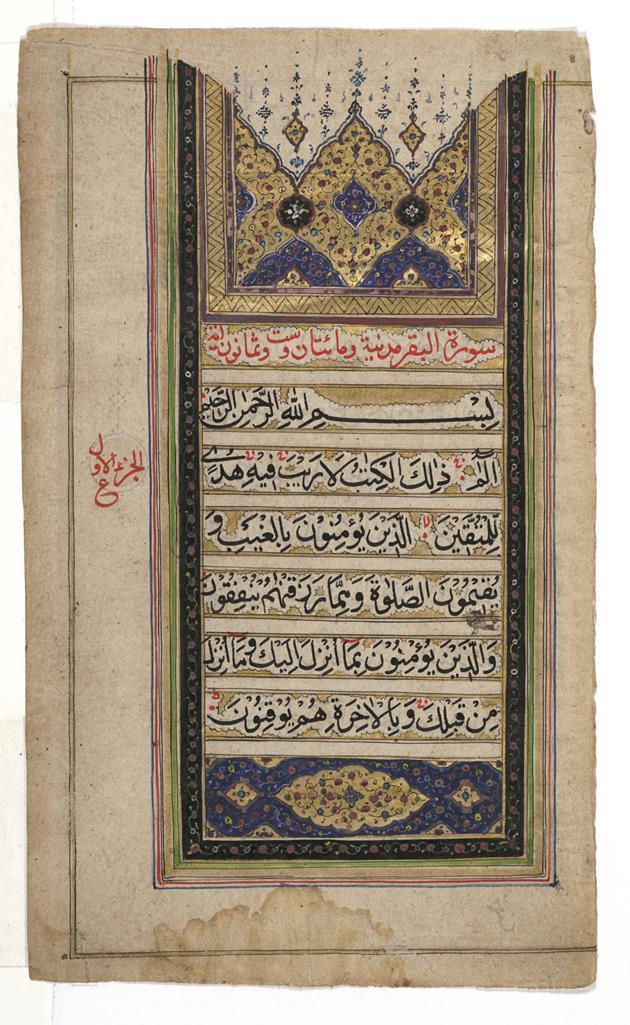 سورة البقر مدنية ومائتان وست وثمانون اية
بِسْمِ اللهِ الرَّحْمٰنِ الرَّحِيْمِ
الٓمٓ ذٰلِكَ الْكِتٰبُ لَا رَيْبَ فِيْهِ هُدًى
لِلْمُتَّقِيْنَ الَّذِيْنَ يُؤْمِنُوْنَ بِالْغَيْبِ وَ
يُقِيْمُوْنَ الصَّلٰوةَ وَمِمَّا رَزَقْنٰهُمْ يُنْفِقُوْنَ
وَالَّذِيْنَ يُؤْمِنُوْنَ بِمَآ اُنْزِلَ اِلَيْكَ وَمَآ اُنْزِلَ
مِنْ قَبْلِكَ وَبِالْاٰخِرَةِ هُمْ يُوْقِنُوْنَ
الجزء الاول
ع